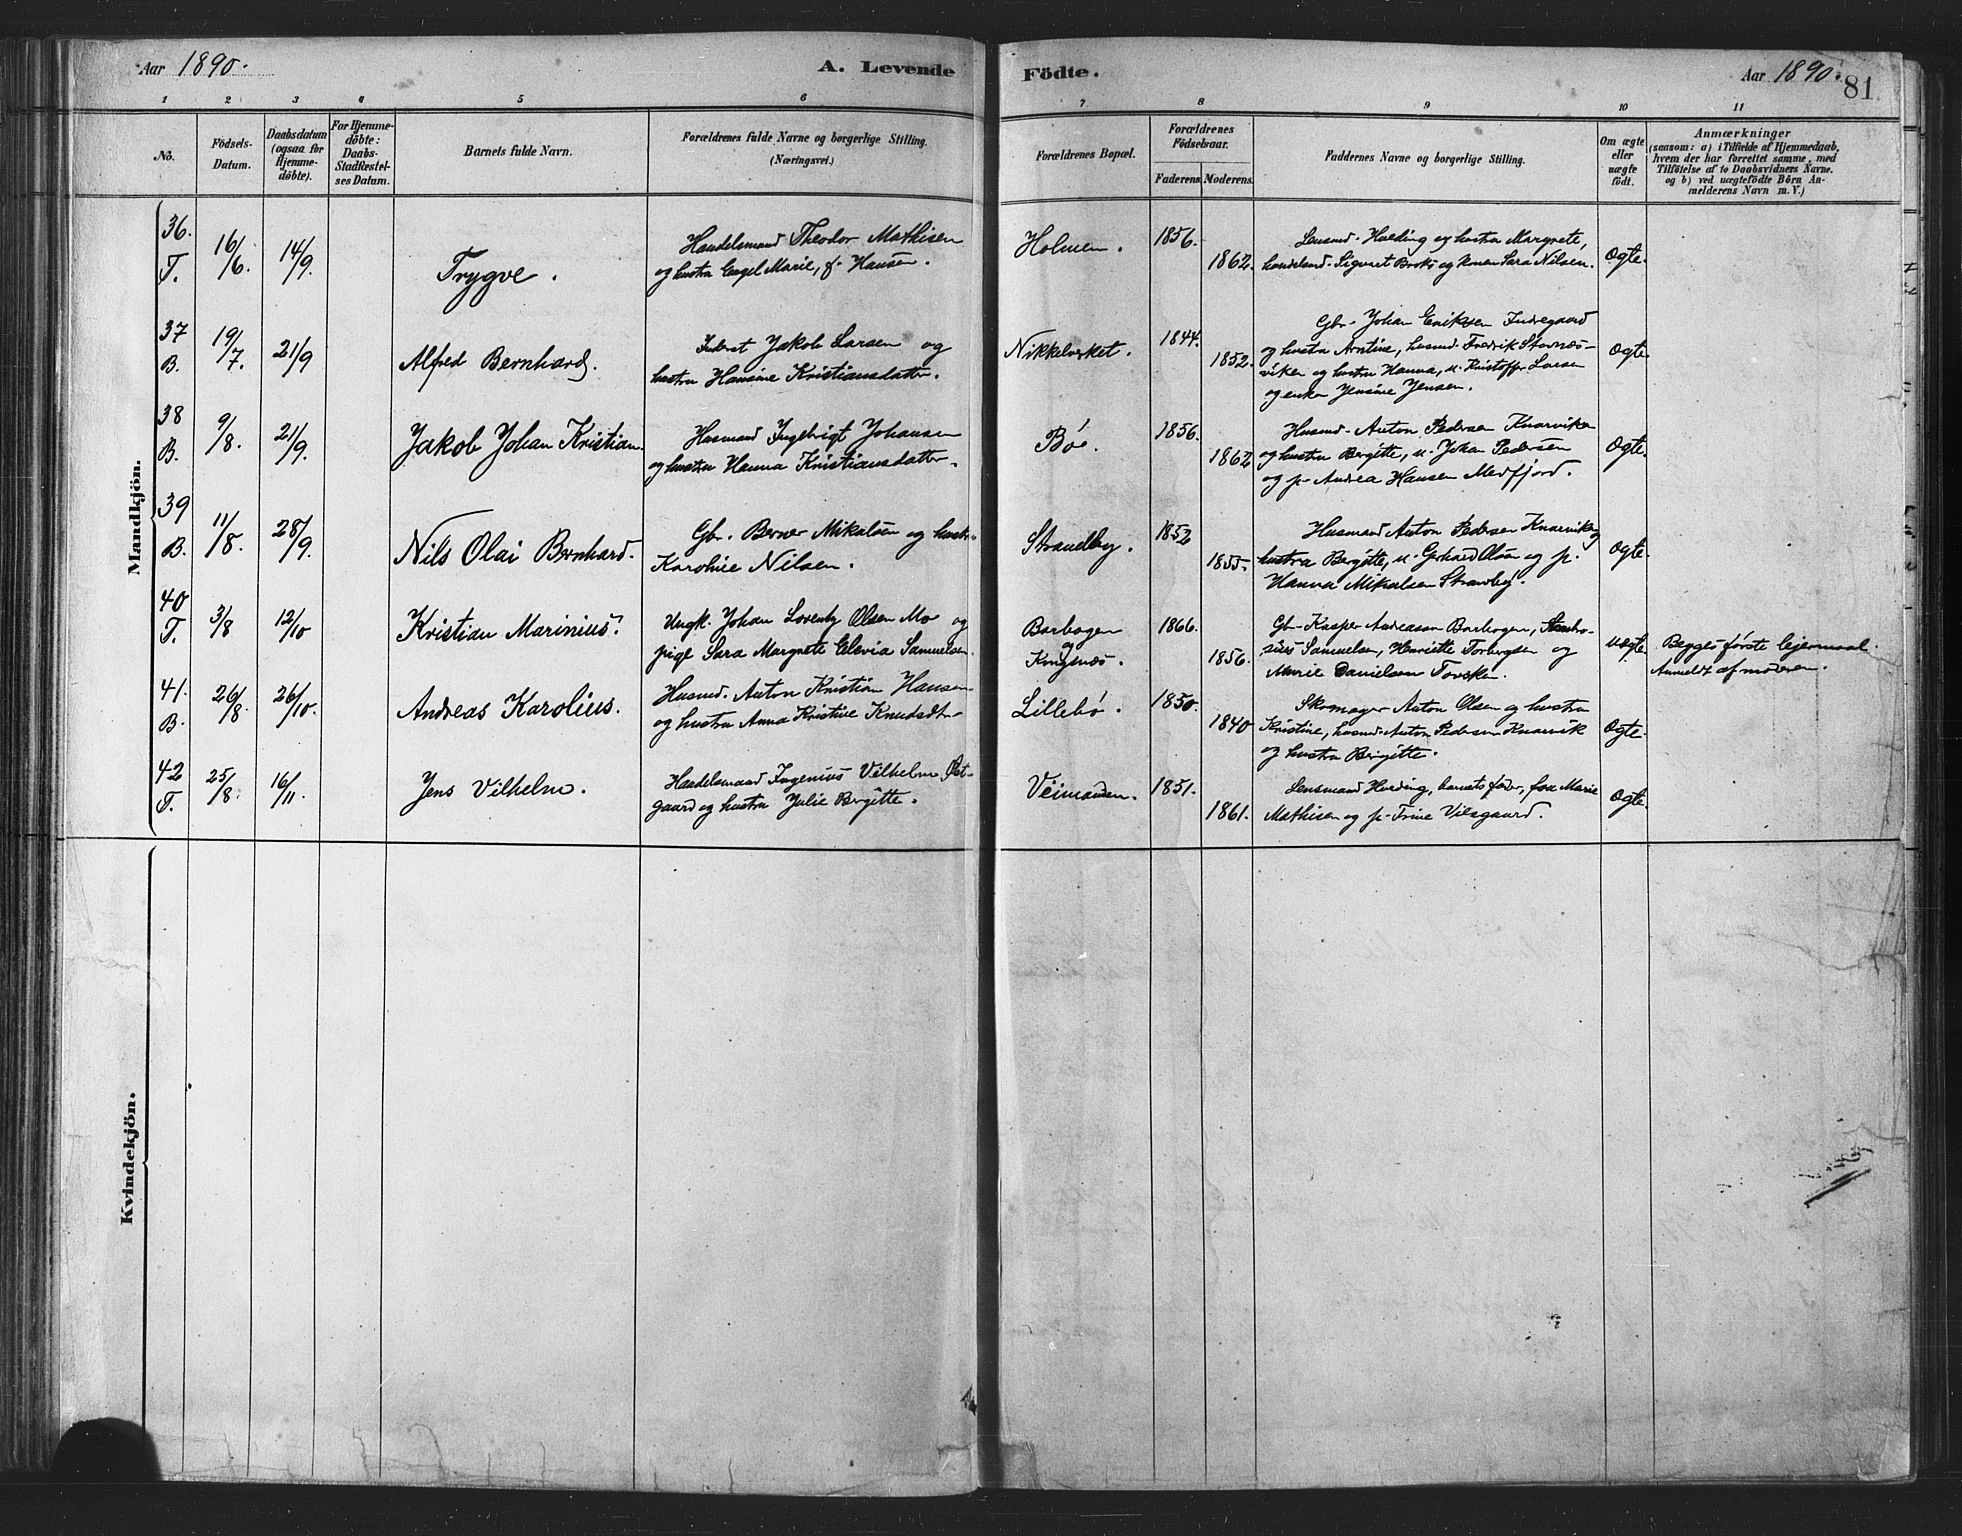 Aar 1890.
A. Levende Födte.
Aar 1890.
81
1 2 3 4 5 6 7 8 9 10 11
No.
Födsels-
Datum.
Daabsdatum
(ogsaa for
Hjemme-
döbte).
For Hjemme-
döbte:
Daabs-
Stadfæstel-
ses Datum.
Barnets fulde Navn.
Forældrenes fulde Navne og borgerlige Stilling.
(Næringsvei.)
Forældrenes Bopæl.
Forældrenes
Födselsaar.
Faderens. Moderens.
Faddernes Navne og borgerlige Stilling.
Om ægte
eller
uægte
födt.
Anmærkninger
(saasom: a) i Tilfælde af Hjemmedaab,
hvem der har forrettet samme, med
Tilföielse af to Daabsvidners Navne.
og b) ved uægtefödte Börn An-
melderens Navn m. V.)
Mandkjön.
36.
T.
16/6.
14/9.
Trygve.
Handelsmand Theodor Mathisen
og hustru Engel Marie, f. Hansen.
Holmen.
1856.
1862.
Lensmd. Hveding og hustru Margrete,
handelsmd. Sigvart Broks og konen Sara Nilsen.
Øgte.
37
B.
19/7.
21/9
Alfred Bernhard.
Inderst Jakob Larsen og
hustru Hansine Kristiansdatter.
Nikkelverket.
1844.
1852.
Gbr. Johan Eriksen Indregaard
og hustru Arntine, husmd. Fredrik Stavnæs-
viken og hustru Hanna, u. Kristoffer Larsen
og enke Jensine Jensen.
Øgte.
38
B.
9/8.
21/9.
Jakob Johan Kristian
Husmand Ingebrigt Johansen
og hustru Hanna Kristiansdatter.
Bø.
1856.
1862
Husmd. Anton Pedersen Knarviken
og hustru Bergitte, u. Johan Pedersen
og p. Andrea Hansen Medfjord.
Øgte.
39
B.
11/8.
28/9.
Nils Olai Bernhard.
Gbr. Berner Mikalsen og hustru
Karoline Nilsen.
Strandby.
1852
1855.
Husmand Anton Pedersen Knarviken og
hustru Bergitte, u. Gerhard Olsen og p.
Hanna Mikalsen Stranby.
Øgte.
40
T.
3/8
12/10
Kristian Marinius.
Ungk. Johan Lorentz Olsen Mo og
pige Sara Margrete Elevia Samuelsen
Barbogen
og
Kongsnæs.
1866.
1856.
Gbr. Kasper Andreasen Barbogen,
Samuelsen, Henriette Torbergsen og
Marie Danielsen Torsken.
uægte.
Begges første lejermaal.
Anmeldt af moderen.
41.
B.
26/8.
26/10.
Andreas Karolius.
Husmd. Anton Kristian Hansen
og hustru Anna Kristine Knudsdtr.
Lillebø.
1850.
1840
Skomager Anton Olsen og hustru
Kristine, husmd. Anton Pedersen Knarvik
og hustru Bergitte.
Øgte.
42
T.
25/8.
16/11.
Jens Vilhelm.
Handelsmand Ingenius Vilhelm Øst-
gaard og hustru Julie Bergitte.
Veimanden.
1851.
1861.
Lensmand Hveding, barnets fader, fru Marie
Mathisen og p. Trine Vilsgaard.
Øgte.
Kvindekjön.